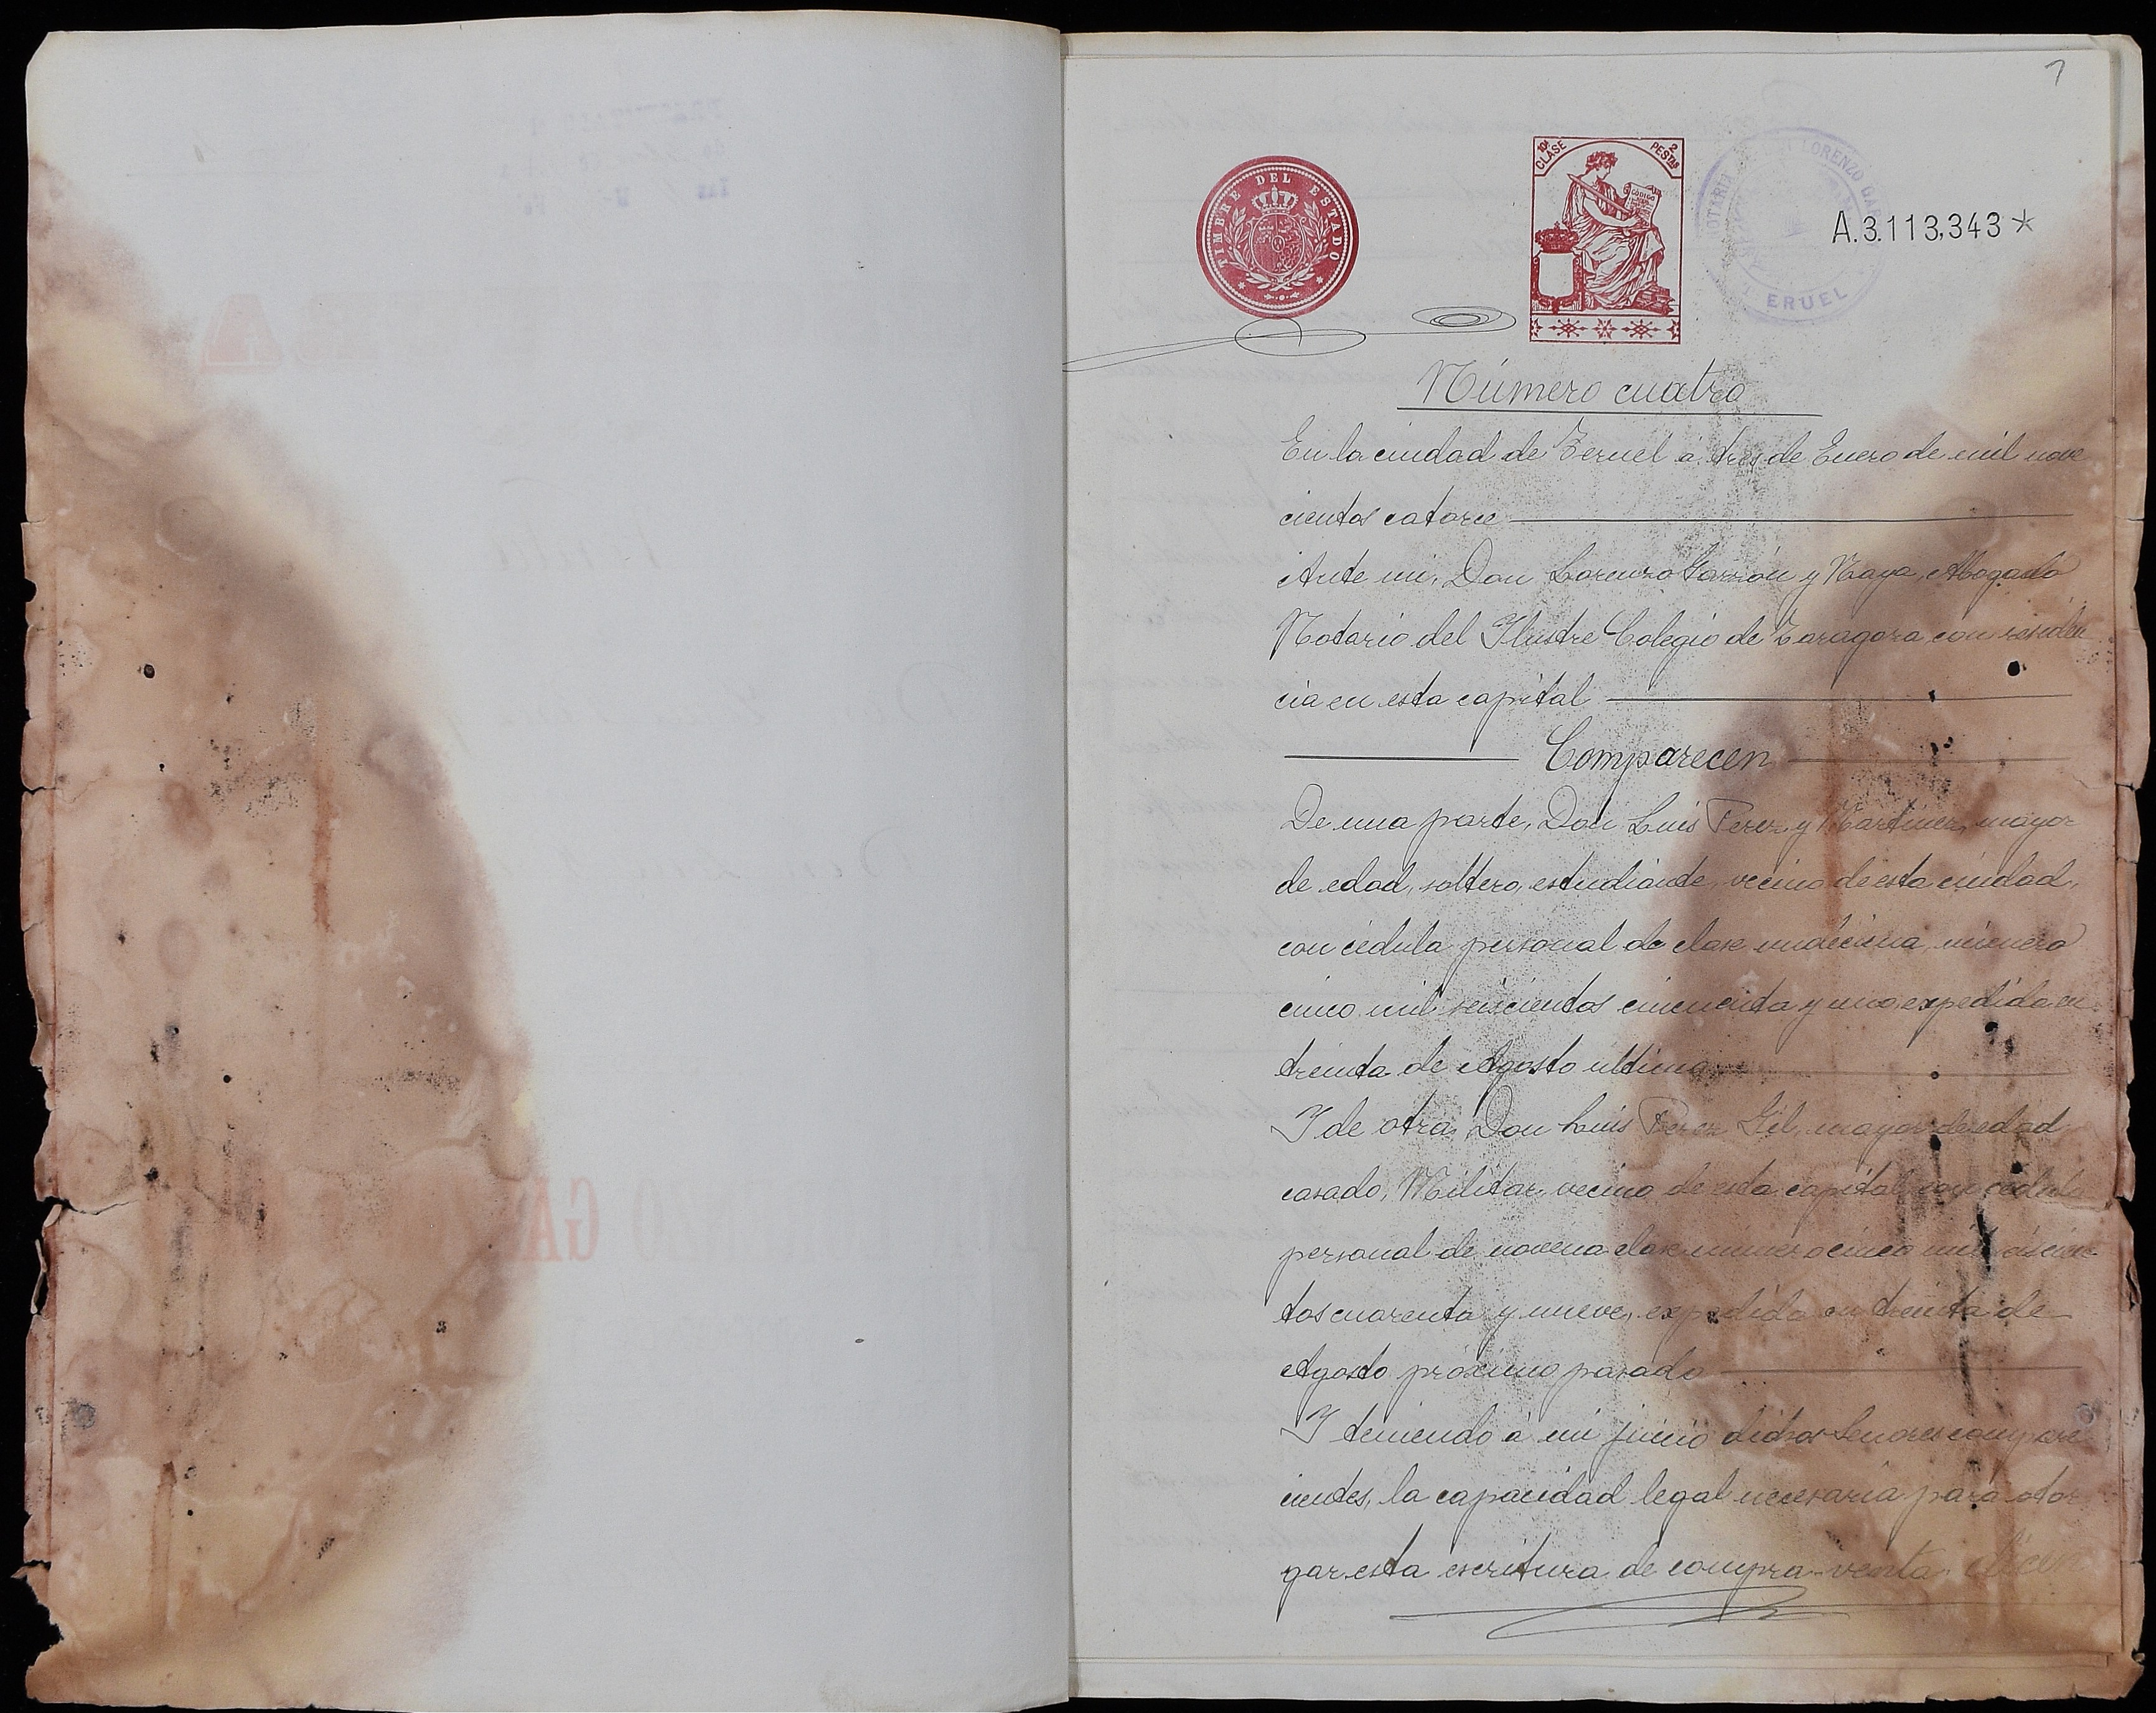 7
TIMBRE DEL ESTADO
10ª CLASE
2 PESTAS
CODIGO
NOTARIA
LORENZO GAR
ERUEL
A.3.113,343*
Número cuatro
En la ciudad de Teruel á tres de Enero de mil nove
cientos catorce
Ante mi, Don Lorenzo Garzón y Naya, Abogado
Notario del Ilustre Colegio de Zaragoza, con residen
cia en esta capital
Comparecen
De una parte, Don Luis Perez y Martinez, mayor
de edad, soltero, estudiante, vecino de esta ciudad,
con cédula personal de clase undécima, número
cinco mil seiscientos cincuenta y uno, expedida en
treinta de Agosto ultimo
Y de otra, Don Luis Perez Gil, mayor de edad
casado, Militar, vecino de esta capital con cédula
personal de novena clase número cinco mil
tos cuarenta y nueve, expedida en treinta de
Agosto próximo pasado
Y teniendo á mi juicio dichos Señores compare
cientes, la capacidad legal necesaria para otor
gar esta escritura de compra-venta, dicen